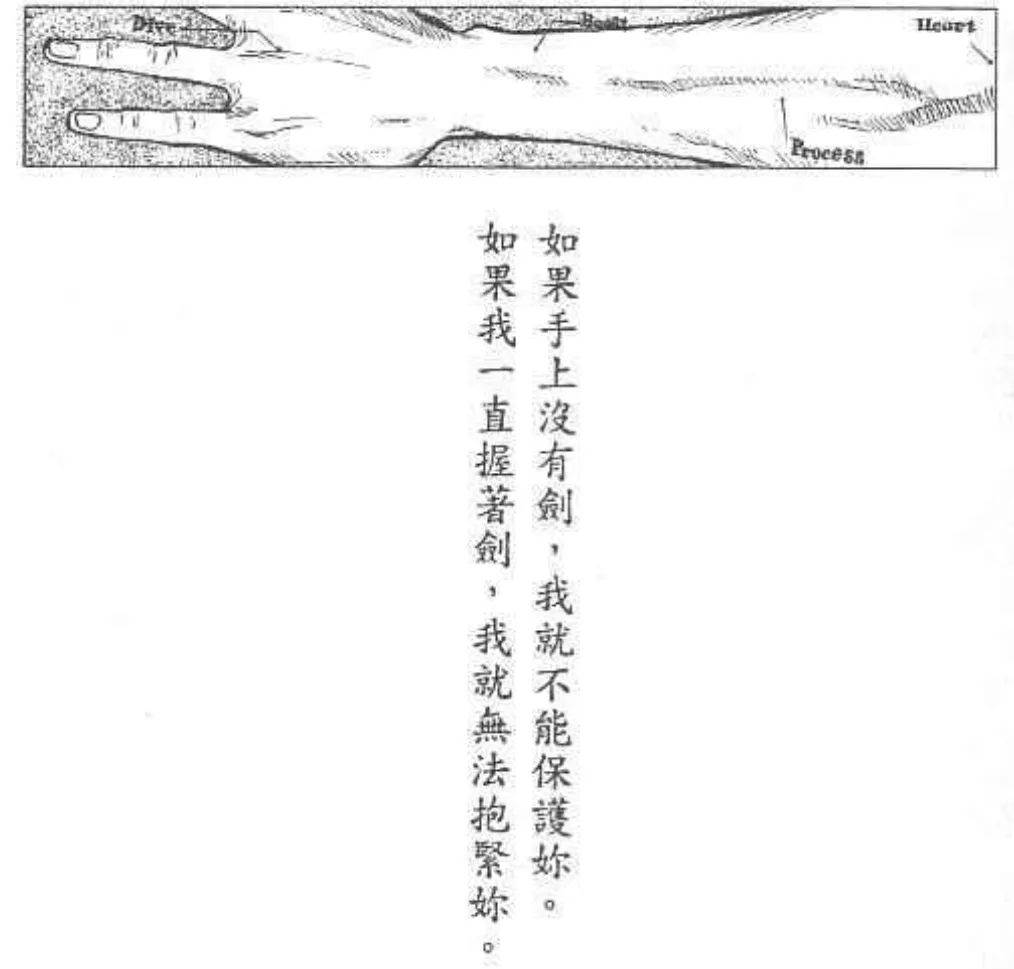 Dive
Heart
Process
如果手上沒有劍，我就不能保護妳。
如果我一直握著劍，我就無法抱緊妳。